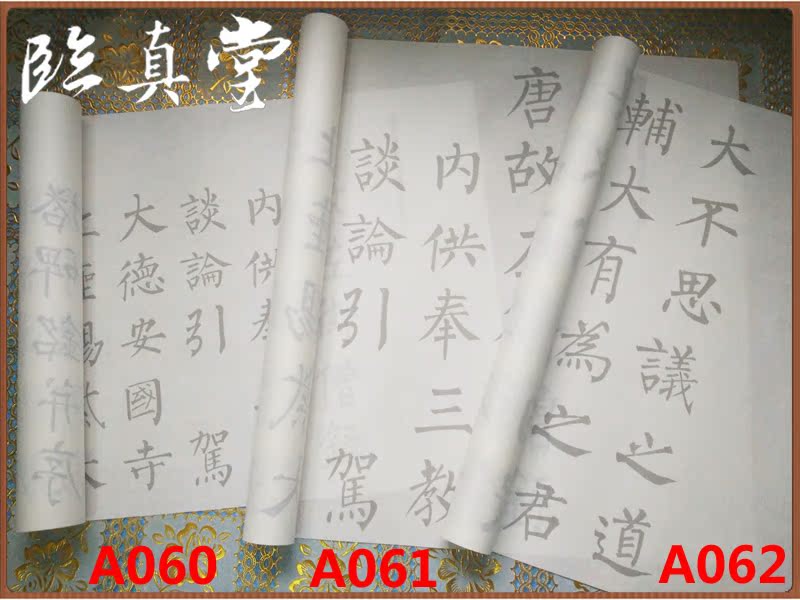 臨真堂
内供奉
談論引 駕
大德安國寺
塔碑銘并序
A060
唐故
内供奉三教
談論引 駕
A061
大不思議之道
輔大有為之君
A062